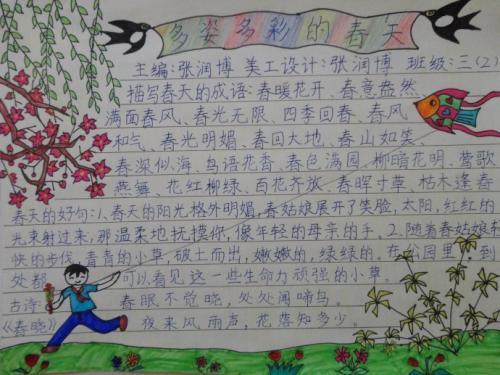 多姿多彩的春天
主编:张润博 美工设计:张润博 班级:三(2)
描写春天的成语:春暖花开、春意盎然、
满面春风、春光无限、四季回春、春风
和气、春光明媚、春回大地、春山如笑、
春深似海、鸟语花香、春色满园、柳暗花明、莺歌
燕舞、花红柳绿、百花齐放、春晖寸草、枯木逢春
春天的好句:1.春天的阳光格外明媚,春姑娘展开了笑脸,太阳,红红的
光束射过来,那温柔地抚摸你,像年轻的母亲的手。2.随着春姑娘和
快的步伐,青青的小草,破土而出,嫩嫩的,绿绿的。在公园里,到
处都可以看见这一些生命力顽强的小草。
古诗:春眠不觉晓,处处闻啼鸟。
《春晓》夜来风雨声,花落知多少。